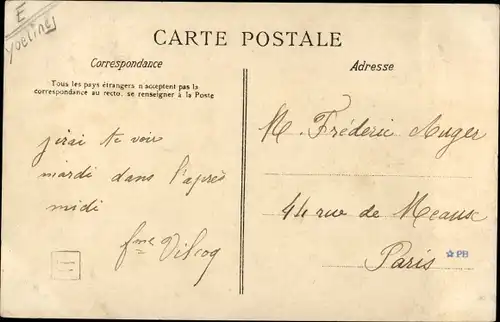 E
Yvelines
CARTE POSTALE
Correspondance
Adresse
Tous les pays étrangers n'acceptent pas la
correspondance au recto, se renseigner à la Poste
jirai te voir
mardi dans l'après
midi
fme Vilcoq
M. Fréderic Auger
44 rue de Meaux
Paris
PB